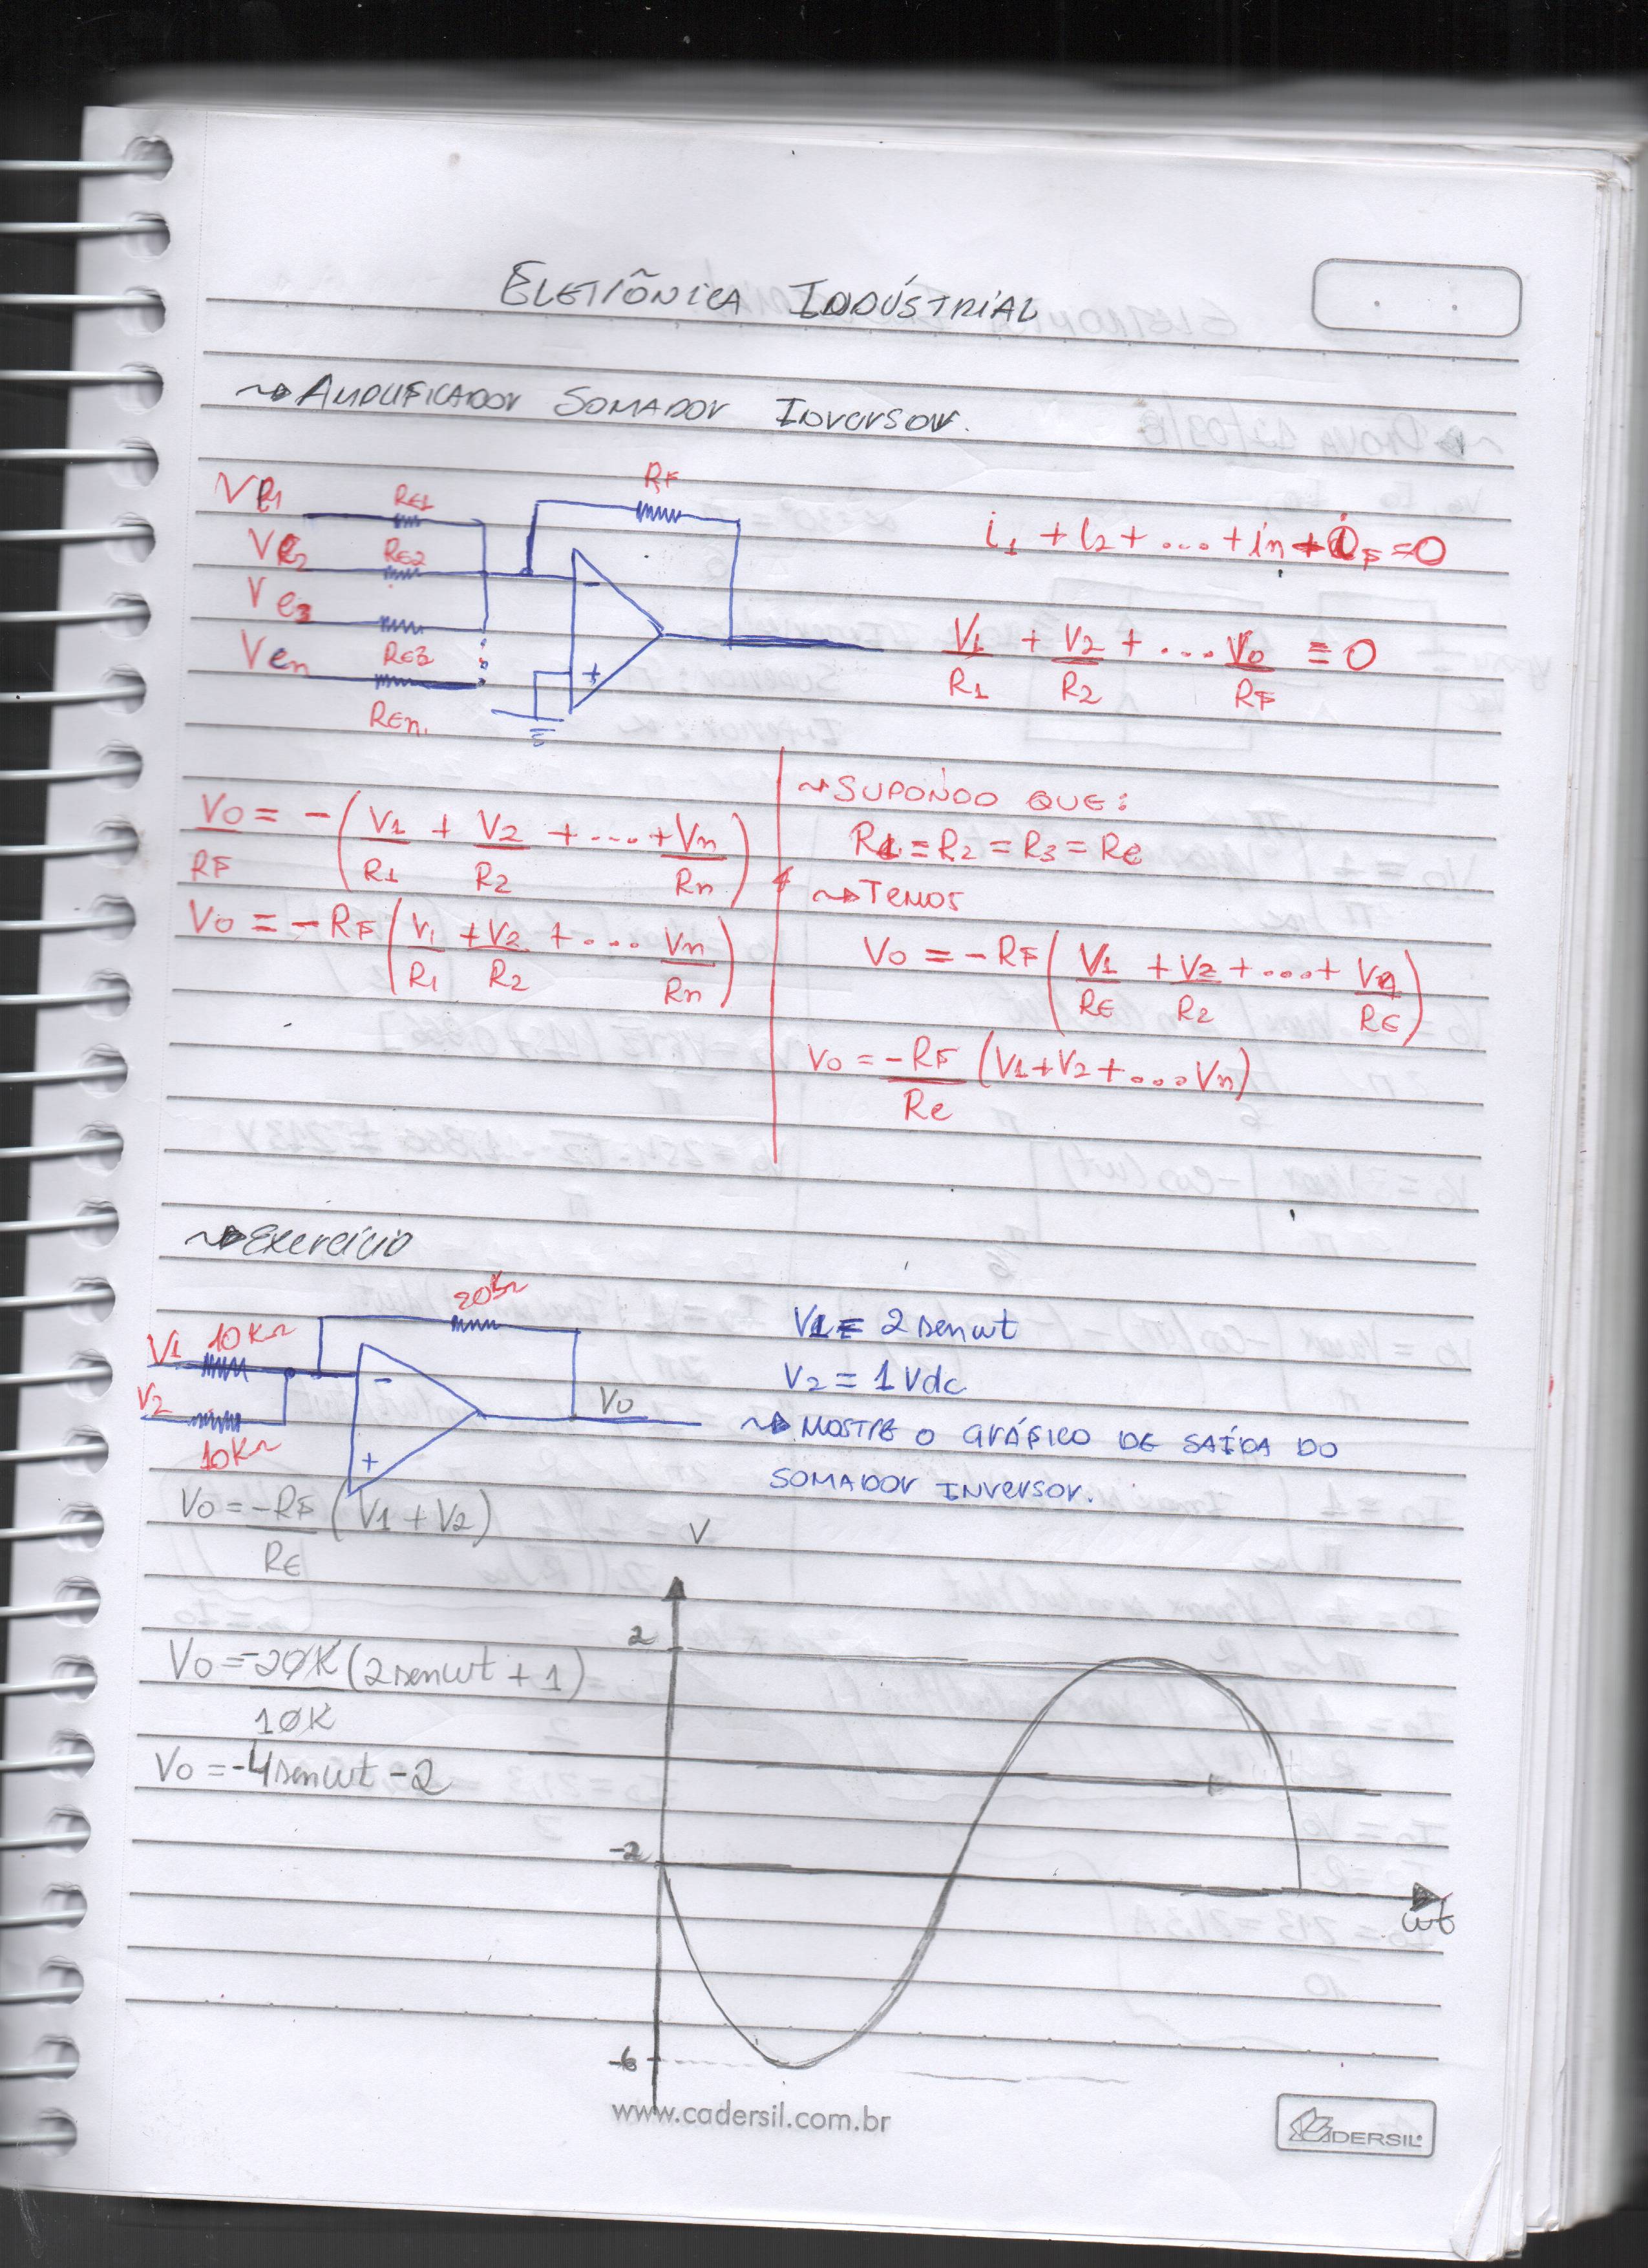 ELETRÔNICA INDÚSTRIAL
~> AMPLIFICADOR SOMADOR INVERSOR.
Ve1 RE1 RF
Ve2 RE2
Ve3
Ven RE3
REn.
- +
i1 + i2 + ... + in + iF = 0
V1/R1 + V2/R2 + ... Vo/RF = 0
Vo/RF = -(V1/R1 + V2/R2 + .... + Vn/Rn)
Vo = -RF(V1/R1 + V2/R2 + .... Vn/Rn)
~> SUPONDO QUE:
R1 = R2 = R3 = Re
~> TEMOS
Vo = -RF(V1/RE + V2/R2 + ....+ Vn/RE)
Vo = -RF/Re (V1+V2+....Vn)
~> Exercício
V1 10KΩ 20KΩ
V2 10KΩ
- +
Vo
V1 = 2senwt
V2 = 1Vdc
~> MOSTRE O GRÁFICO DE SAÍDA DO
SOMADOR INVERSOR.
Vo = -RF/RE (V1 + V2)
Vo = -20K/10K (2senwt + 1)
Vo = -4senwt - 2
V
2
-2
wt
-6
www.cadersil.com.br
CADERSIL